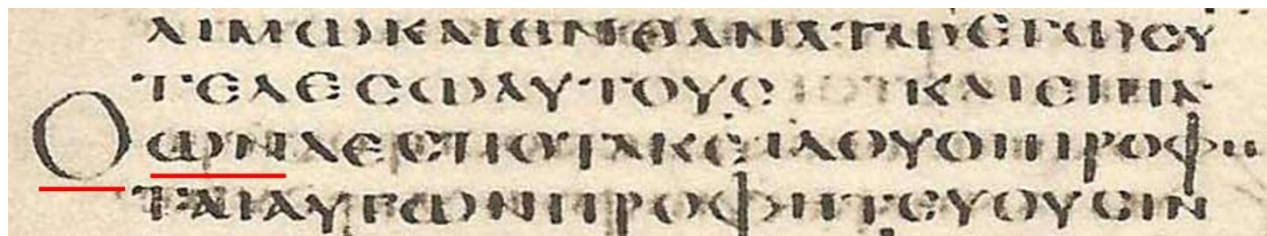 ΛΙΜΩΚΑΙΕΝΘΑΝΑΤΩΕΓΩϹΥ
ΤΕΛΕϹΩΑΥΤΟΥϹ ΚΑΙΕΙΠΑ
ΟΩΝΔΕϹΠΟΤΑΚΕΙΔΟΥΟΙΠΡΟΦΗ
ΤΑΙΑΥΤΩΝΠΡΟΦΗΤΕΥΟΥϹΙΝ